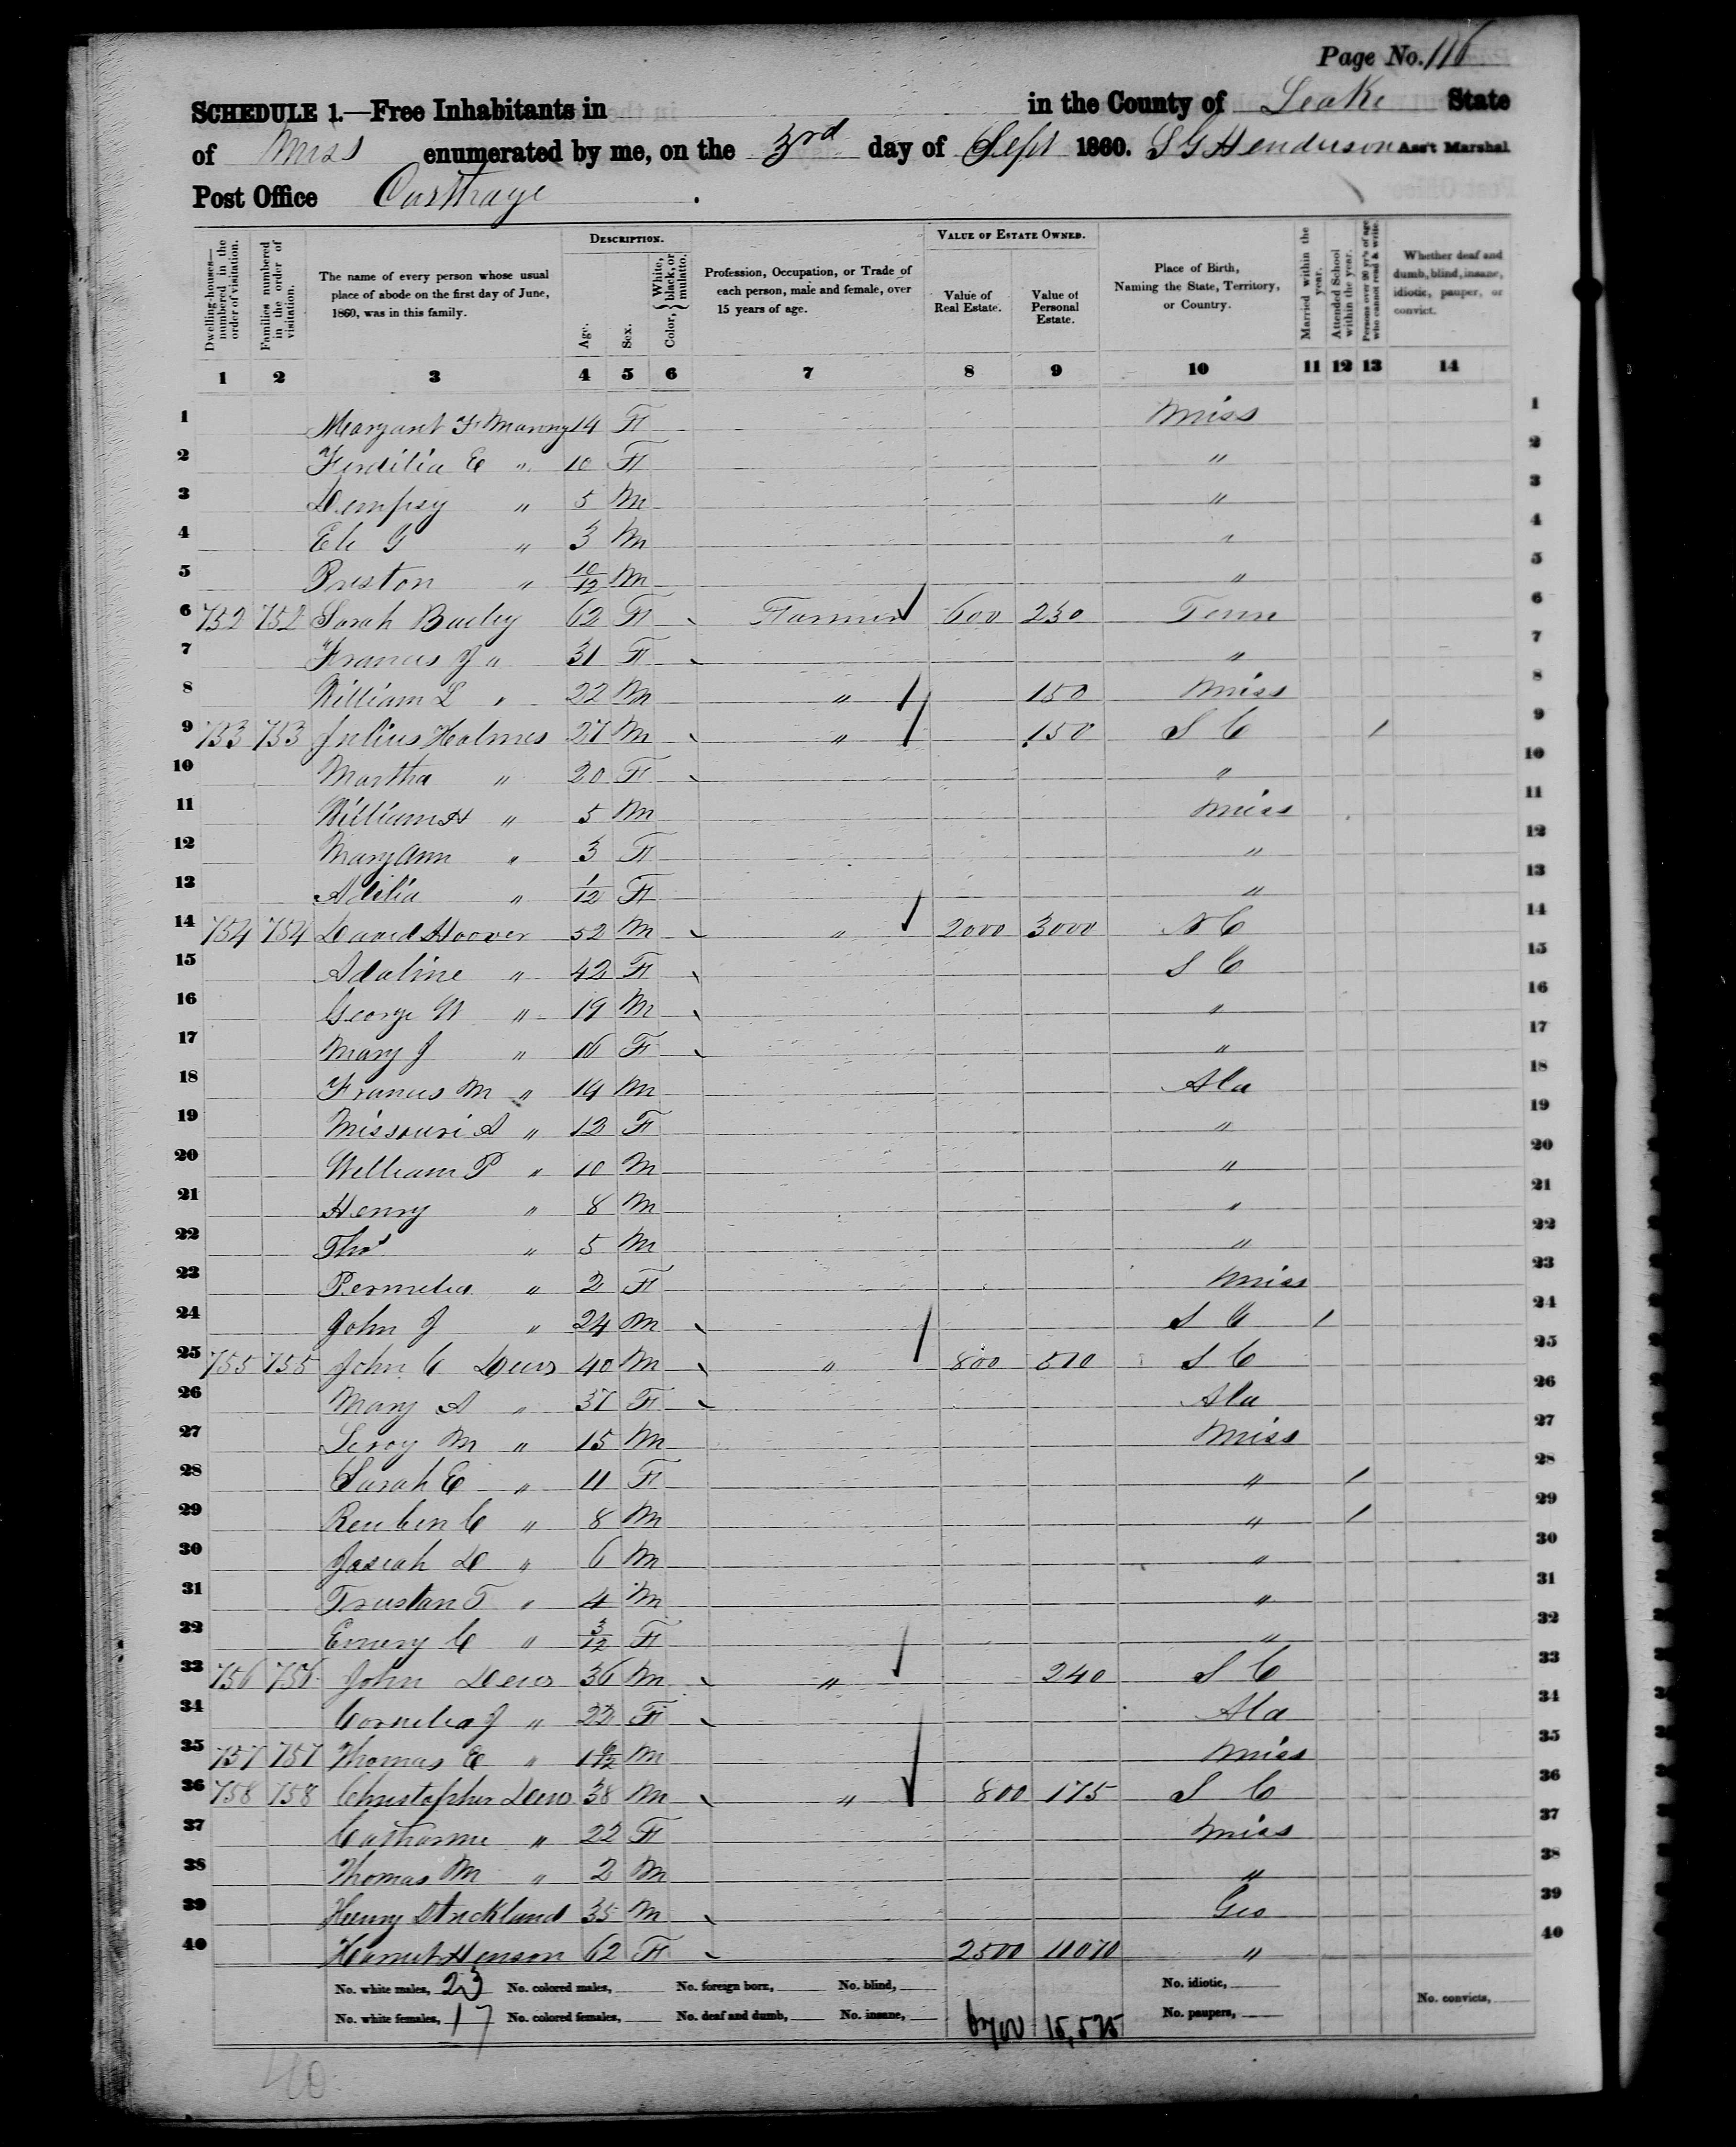 Page No. 116
SCHEDULE 1.—Free Inhabitants in in the County of Leake State
of Miss enumerated by me, on the 3rd day of Sept 1860. S G Henderson Ass't Marshal
Post Office Carthage .
DESCRIPTION. VALUE OF ESTATE OWNED.
Dwelling-houses—numbered in the order of visitation. Families numbered in the order of visitation. The name of every person whose usual place of abode on the first day of June, 1860, was in this family. Age. Sex. Color, { White, black, or mulatto. Profession, Occupation, or Trade of each person, male and female, over 15 years of age. Value of Real Estate. Value of Personal Estate. Place of Birth, Naming the State, Territory, or Country. Married within the year. Attended School within the year. Persons over 20 yr's of age who cannot read & write. Whether deaf and dumb, blind, insane, idiotic, pauper, or convict.
1 2 3 4 5 6 7 8 9 10 11 12 13 14
1 Margaret F Manny 14 F Miss 1
2 E " 10 F " 2
3 Dempsy " 5 M " 3
4 Eli G " 3 M " 4
5 Preston " 10/12 M " 5
6 752 752 Sarah 62 F Farmer 600 230 Tenn 6
7 Frances J " 31 F " 7
8 William L " 22 M " 150 Miss 8
9 753 753 Julius Holmes 27 M " 150 S C / 9
10 Martha " 20 F " 10
11 William H " 5 M Miss 11
12 Mary Ann " 3 F " 12
13 Adilia " 1/12 F " 13
14 754 754 David Hoover 52 M " 2000 3000 N C 14
15 Adaline " 42 F S C 15
16 George W " 19 M " 16
17 Mary J " 16 F " 17
18 Francis M " 14 M Ala 18
19 Missouri A " 12 F " 19
20 William P " 10 M " 20
21 Henry " 8 M " 21
22 Thos " 5 M " 22
23 Permelia " 2 F Miss 23
24 John J " 24 M S C / 24
25 755 755 John C Dews 40 M " 800 510 S C 25
26 Mary A " 37 F Ala 26
27 Leroy M " 15 M Miss 27
28 Sarah E " 11 F " / 28
29 Reuben C " 8 M " / 29
30 Josiah D " 6 M " 30
31 Trustan T " 4 M " 31
32 Emery C " 3/12 F " 32
33 756 756 John Dews 36 M " 240 S C 33
34 Cornelia J " 22 F Ala 34
35 757 757 Thomas E " M Miss 35
36 758 758 Christopher Dews 38 M " 800 175 S C 36
37 Catharine " 22 F Miss 37
38 Thomas M " 2 M " 38
39 Henry Strickland 35 M Geo 39
40 Harriet Henson 62 F 2500 11070 " 40
No. white males, 23 No. colored males, No. foreign born, No. blind, No. idiotic,
No. white females, 17 No. colored females, No. deaf and dumb, No. insane, 6700 15,525 No. paupers, No. convicts,
40